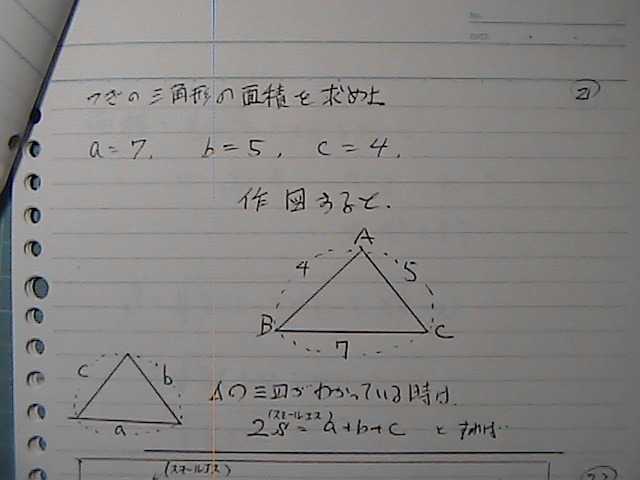 NO.
DATE
つぎの三角形の面積を求めよ
21
a=7, b=5, c=4,
作図すると、
A
4 5
B C
7
c b
a
の三辺がわかっている時は、
(スモールエス)
2s=a+b+c とすれば…
(スモールエス)